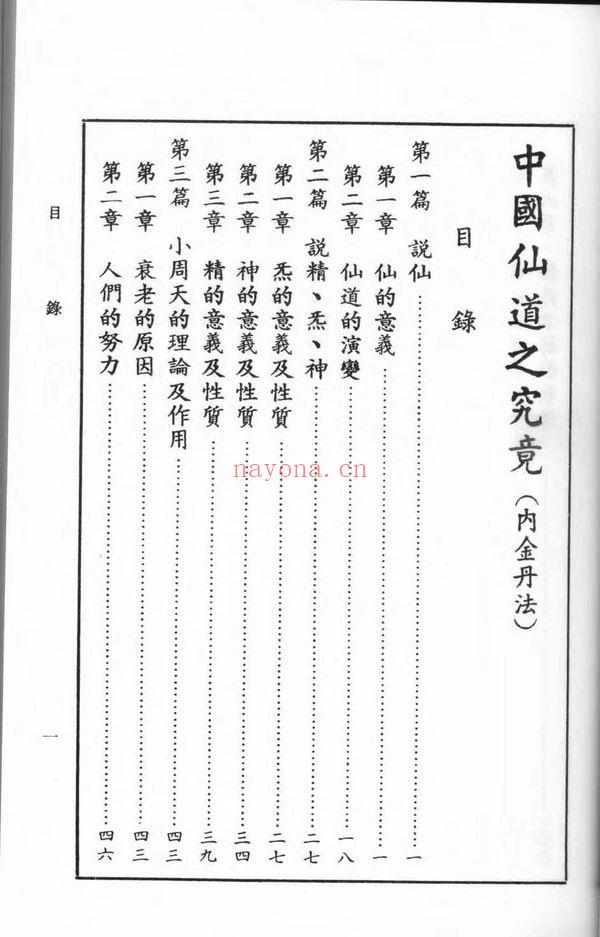 中國仙道之究竟（内金丹法）
目錄
第一篇 説仙……一
第一章 仙的意義……一
第二章 仙道的演變……一八
第二篇 説精、炁、神……二七
第一章 炁的意義及性質……二七
第二章 神的意義及性質……三四
第三章 精的意義及性質……三九
第三篇 小周天的理論及作用……四三
第一章 衰老的原因……四三
第二章 人們的努力……四六
目錄
一
nayona.cn